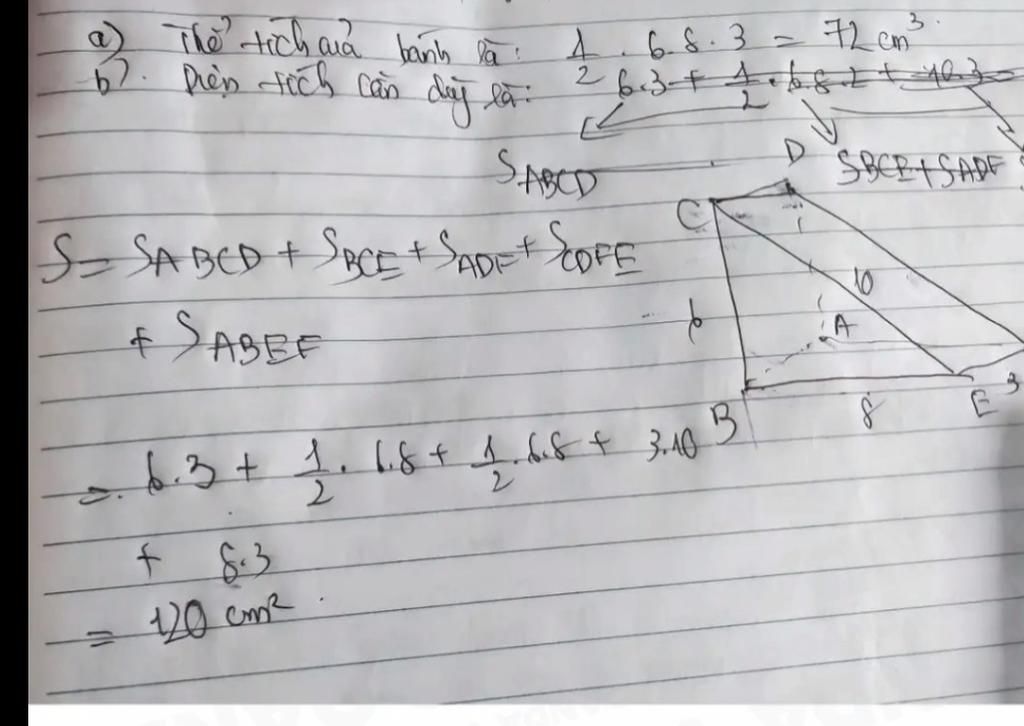 a) Thể tích của bánh là: 1/2 . 6.8.3 = 72 cm³.
b). Diện tích cần dùng là: 6.3 + 1/2 . 6.8.2 + 10.3 =
S_ABCD
S_BCE + S_ADF
S = S_ABCD + S_BCE + S_ADF + S_CDFE
+ S_ABEF
= 6.3 + 1/2 . 6.8 + 1/2 . 6.8 + 3.10
+ 8.3
= 120 cm².
D
C
10
6
A
B
8
E
3